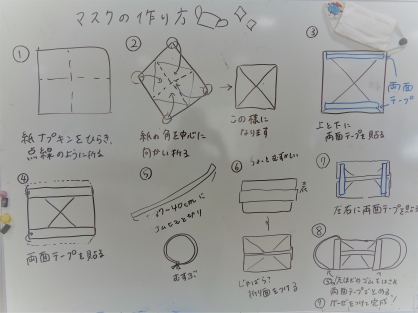 マスクの作り方
①
紙ナプキンをひらき、
点線のように折る
②
紙の角を中心に
向かい折る
この様に
なります
③
両面
テープ
上と下に
両面テープを貼る
④
両面テープを貼る
⑤
37~40cmに
むすぶ
⑥
ちょっとむずかしい
じゃばら?
折り面をつける
⑦
左右に両面テープを貼る
⑧
両面テープでとめる
⑨ ガーゼをつけて完成!